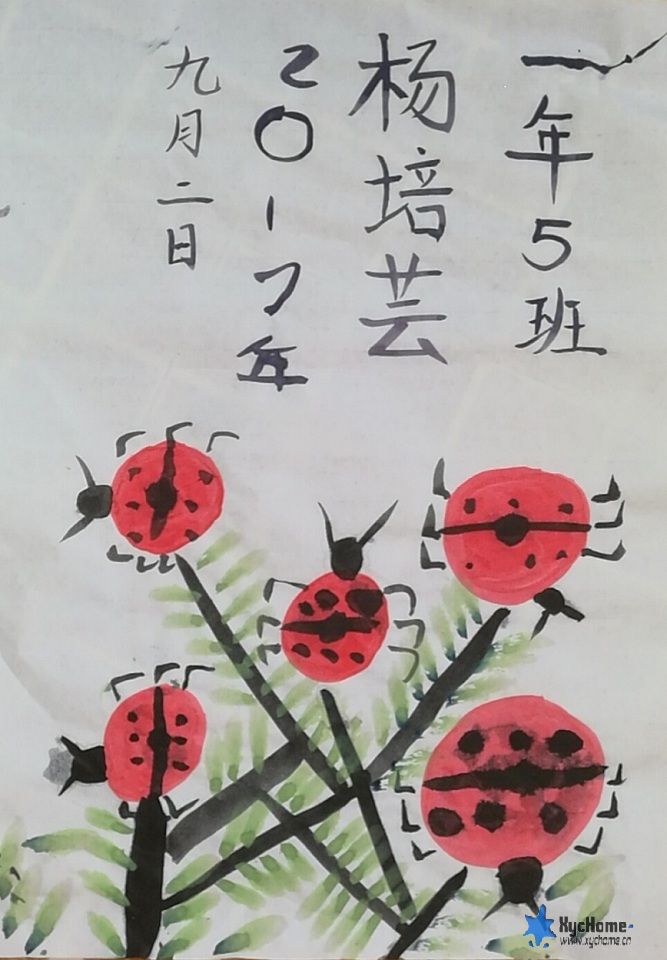 一年5班
杨培芸
2017年
九月二日
XycHome
www.xychome.cn